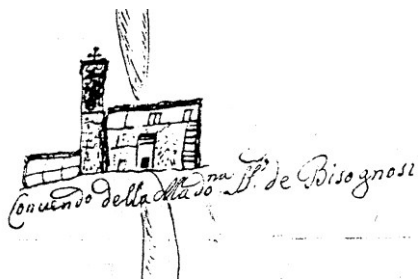 Conuendo della Madonna de Bisognosi